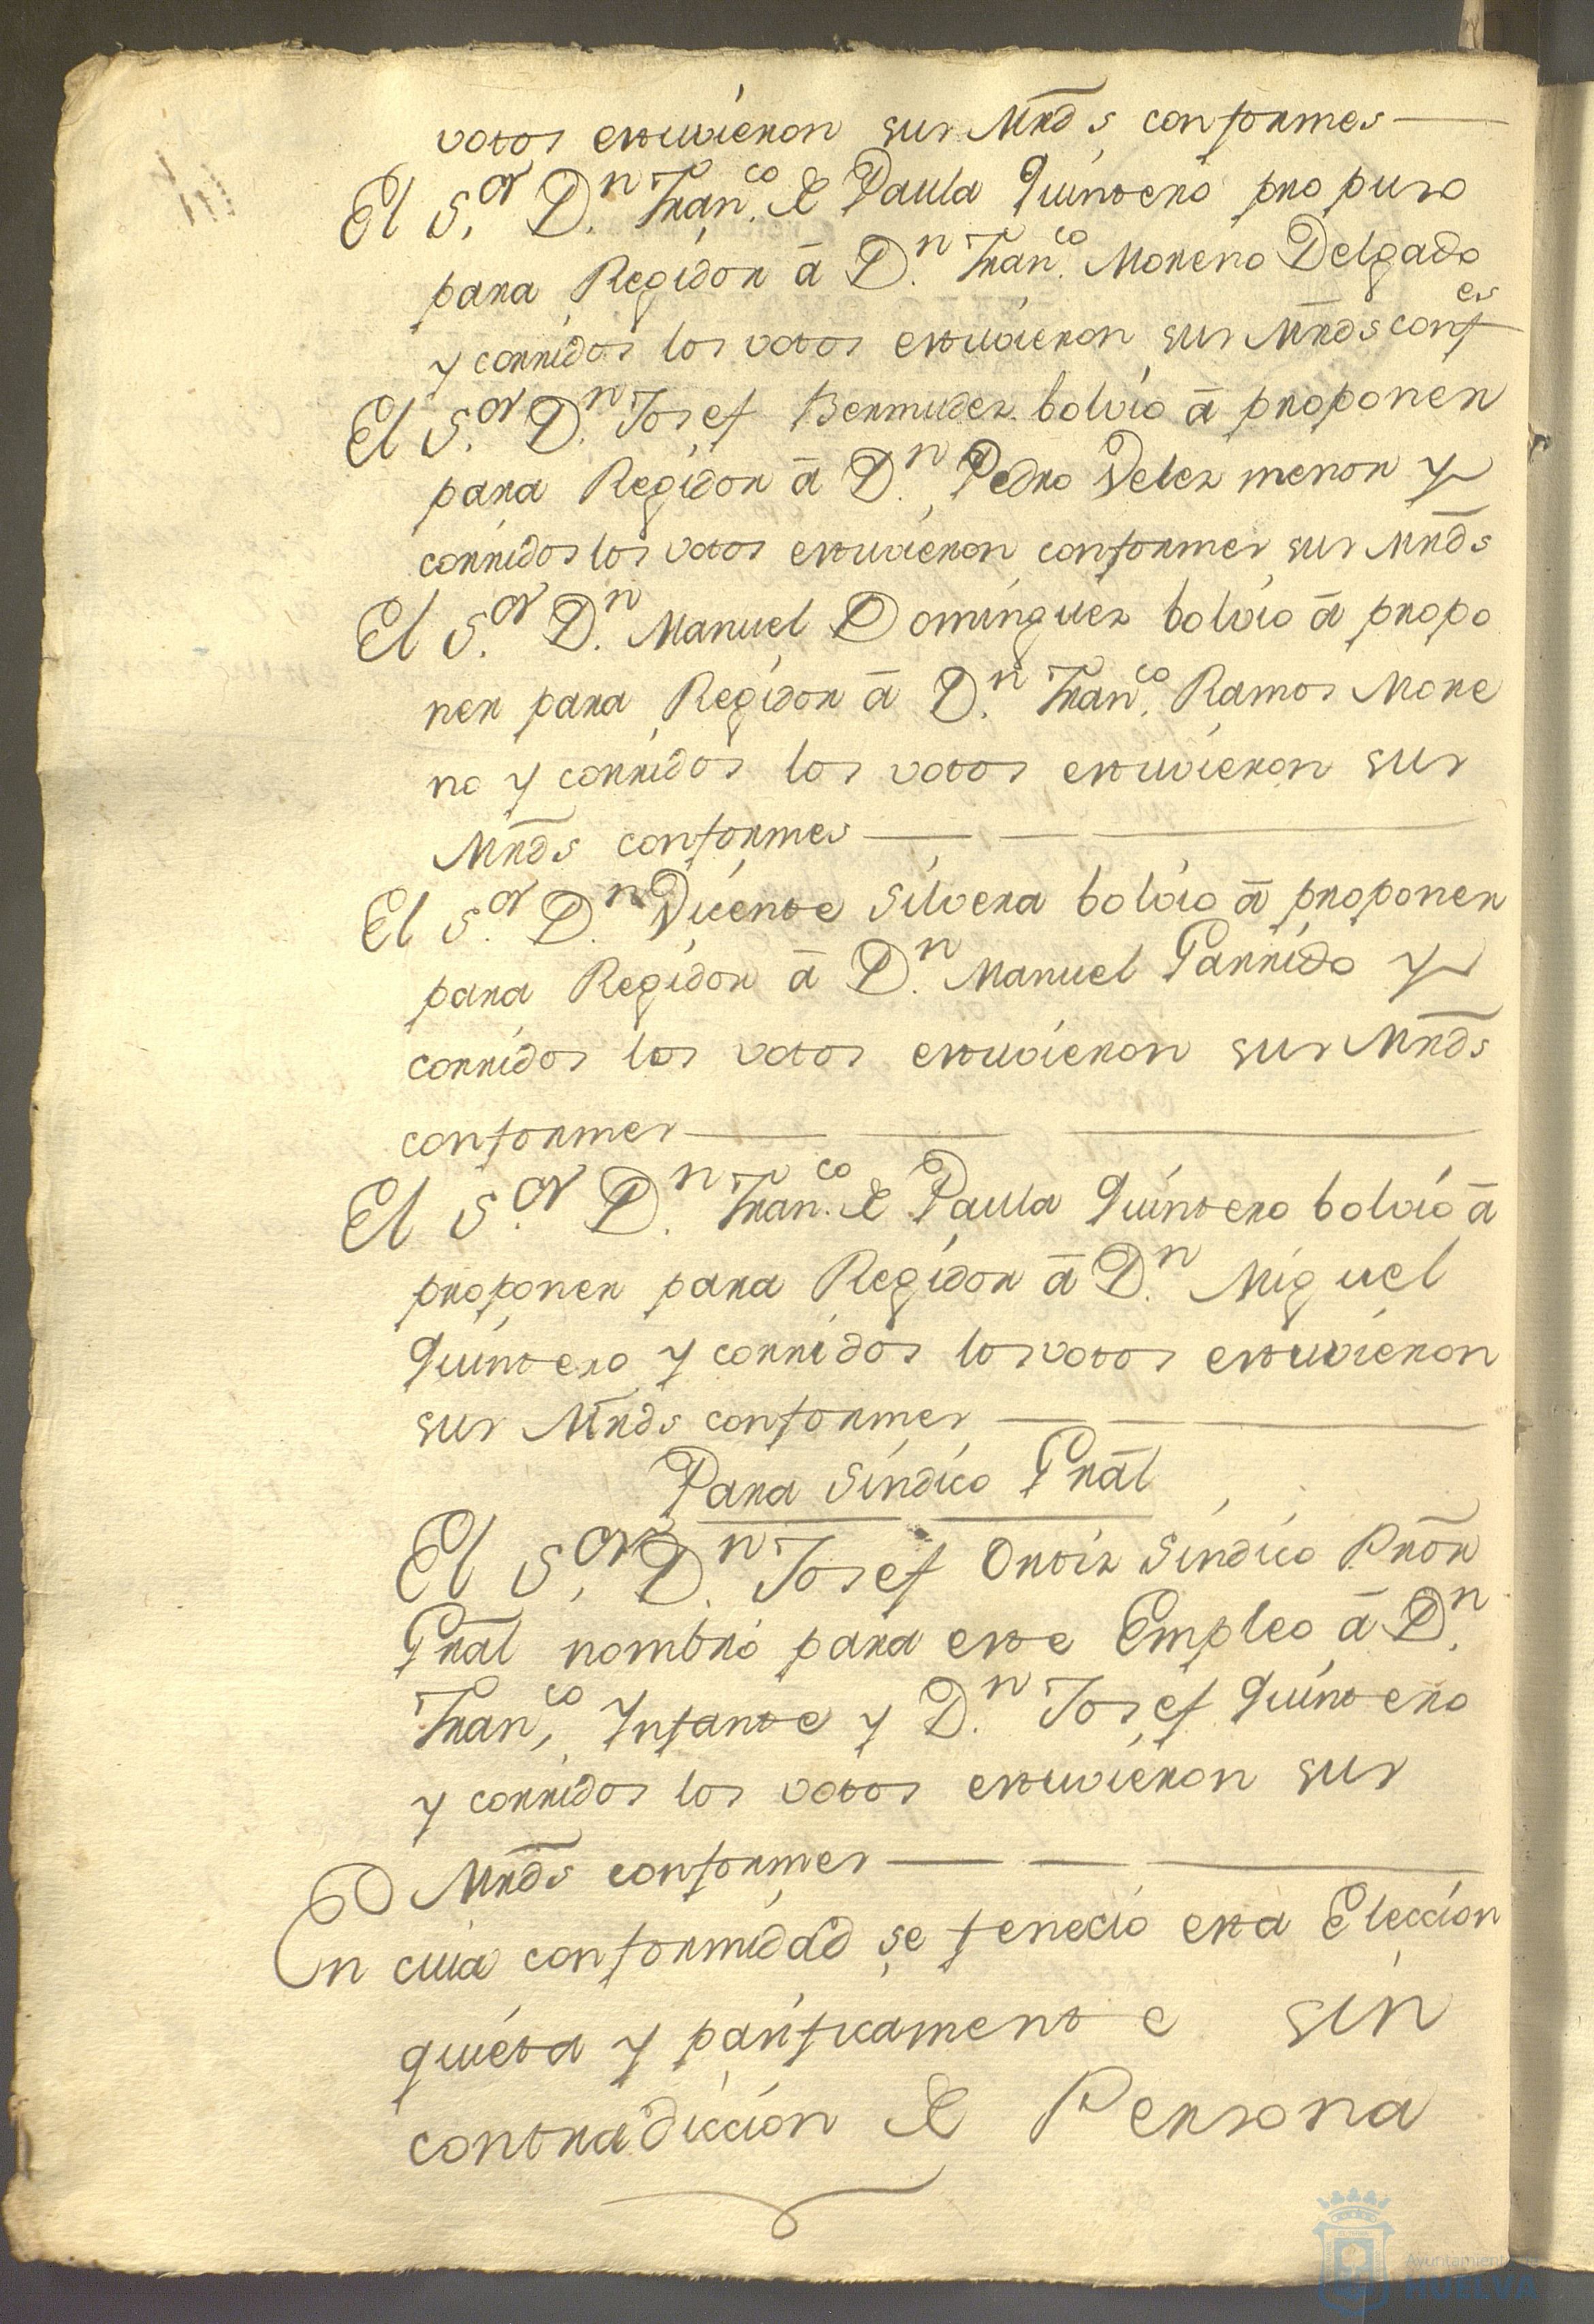 votos estuvieron sus Mrds conformes
El S.or D.n Fran.co de Paula Quintero propuso
para Regidor â D.n Fran.co Moreno Delgado
y corridos los votos estuvieron sus Mrds conf.es
El S.or D.n Josef Bermudez bolvio â proponer
para Regidor â D.n Pedro Velez menor y
corridos los votos estuvieron conformes sus Mrds
El S.or D.n Manuel Dominguez bolvio â propo
ner para Regidor â D.n Fran.co Ramos More
no y corridos los votos estuvieron sus
Mrds conformes
El S.or D.n Vicente Silvera bolvio â proponer
para Regidor â D.n Manuel Garrido y
corridos los votos estuvieron sus Mrds
conformes
El S.or D.n Fran.co de Paula Quintero bolvio â
proponer para Regidor â D.n Miguel
Quintero y corridos los votos estuvieron
sus Mrds conformes
Para Sindico Gral
El S.or D.n Josef Ortiz Sindico Pror
Gral nombró para este Empleo â D.n
Fran.co Ynfante y D.n Josef Quintero
y corridos los votos estuvieron sus
Mrds conformes
En cuia conformidad se feneció esta Elección
quieta y pasificamente sin
contradiccion de Persona
Ayuntamiento
HUELVA